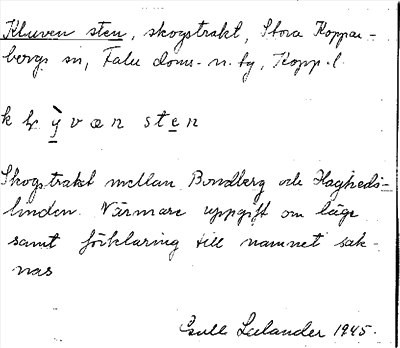 Kluven sten, skogstrakt, Stora Koppar-
bergs sn, Falu doms. n. tg, Kopp. l.
sten
Skogstrakt mellan Bondberg och Hagheds-
linden. Närmare uppgift om läge
samt förklaring till namnet sak-
nas
Lelander 1945.